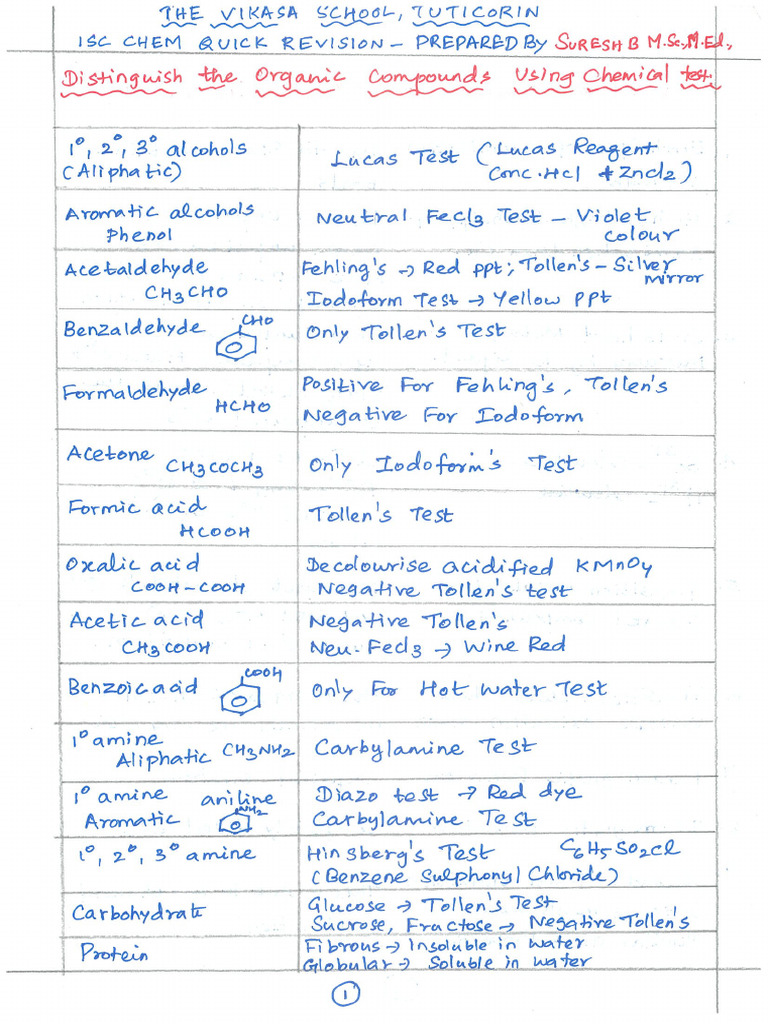 THE VIKASA SCHOOL, TUTICORIN
ISC CHEM QUICK REVISION - PREPARED BY SURESH B M.Sc., M.Ed.,
Distinguish the Organic Compounds Using Chemical test.
1°, 2°, 3° alcohols
(Aliphatic)
Lucas Test (Lucas Reagent
Conc.Hcl + Zncl2)
Aromatic alcohols
Phenol
Neutral Fecl3 Test - Violet
colour
Acetaldehyde
CH3CHO
Fehling's → Red ppt; Tollen's - Silver
mirror
Iodoform Test → Yellow ppt
Benzaldehyde
CHO
Only Tollen's Test
Formaldehyde
HCHO
Positive For Fehling's, Tollen's
Negative For Iodoform
Acetone
CH3COCH3
Only Iodoform's Test
Formic acid
HCOOH
Tollen's Test
Oxalic acid
COOH-COOH
Decolourise acidified KMnO4
Negative Tollen's test
Acetic acid
CH3COOH
Negative Tollen's
Neu. Fecl3 → Wine Red
Benzoic acid
COOH
Only For Hot water Test
1° amine
Aliphatic CH3NH2
Carbylamine Test
1° amine aniline
Aromatic NH2
Diazo test → Red dye
Carbylamine Test
1°, 2°, 3° amine
Hinsberg's Test C6H5SO2Cl
(Benzene Sulphonyl Chloride)
Carbohydrate
Glucose → Tollen's Test
Sucrose, Fructose → Negative Tollen's
Protein
Fibrous → Insoluble in water
Globular → Soluble in water
1